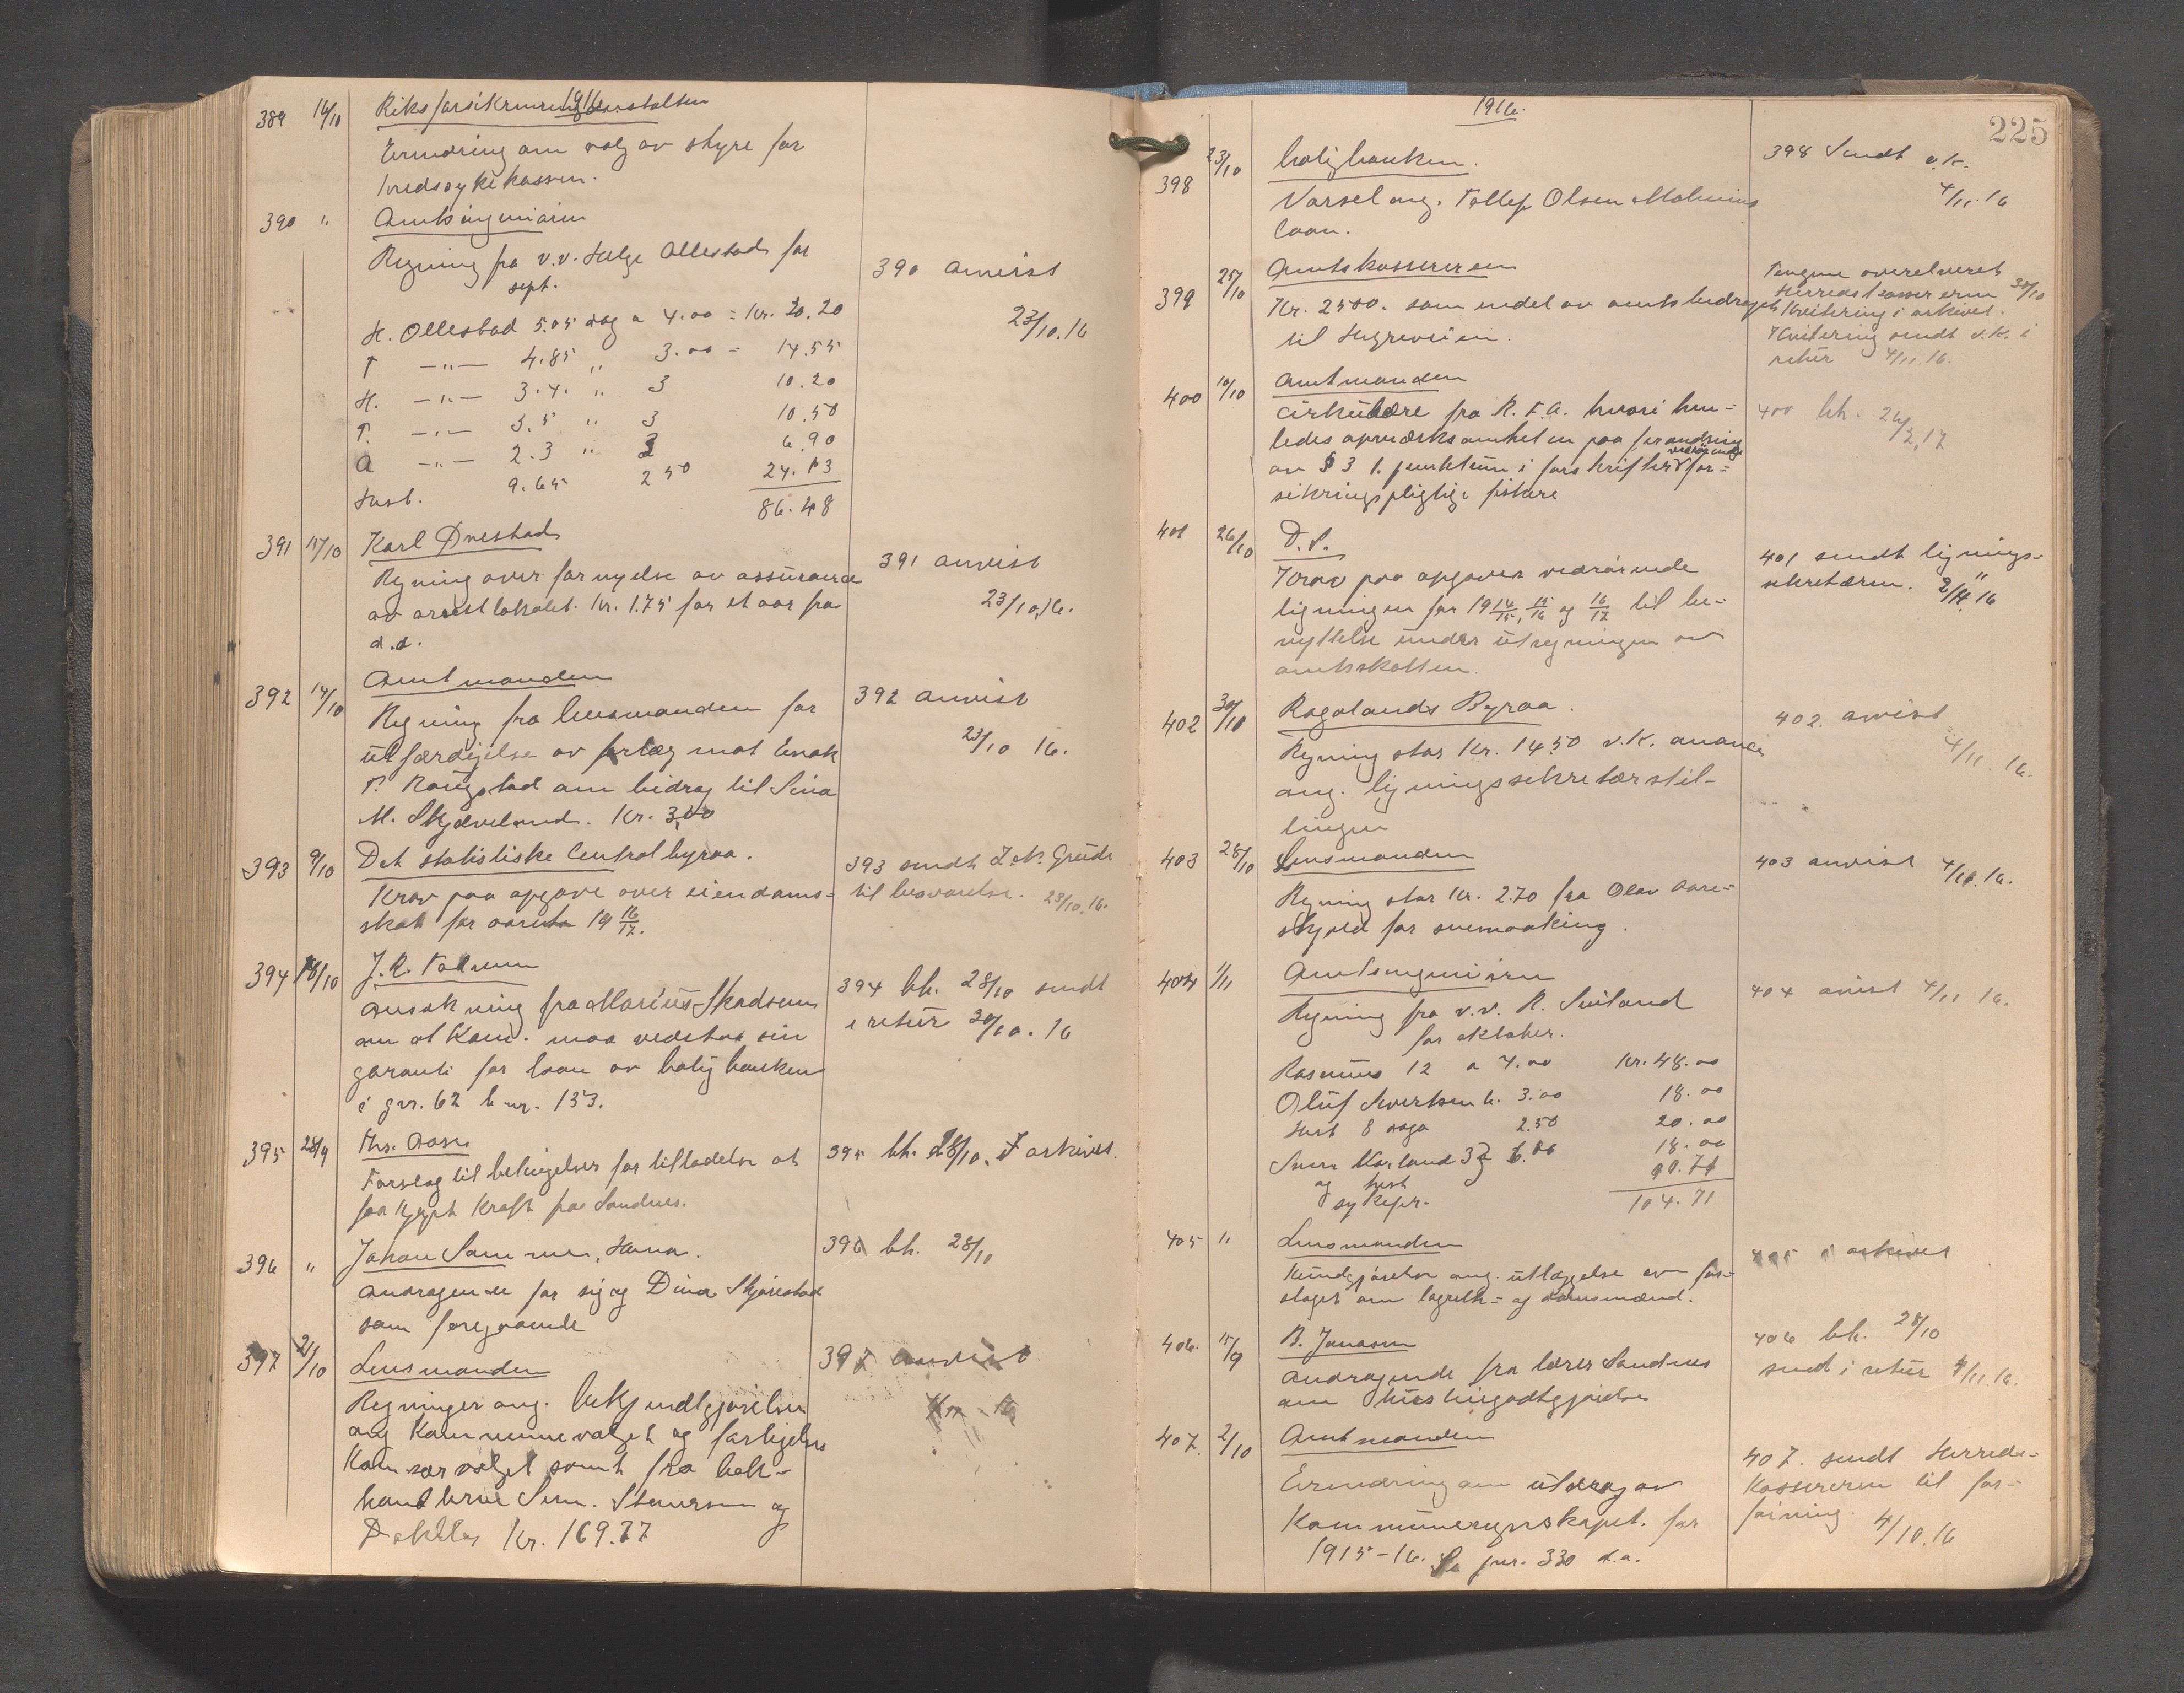 1916
389 16/10 Riksforsikringsanstalten
Erindring om valg av styre for
kredssykekassen.
390 " Amtsingeniøren
Regning fra v.v. Helge Ollestad for
sept.
390 anvist
23/10.16
H. Ollestad 5.05 dag a 4.00 = Kr. 20.20
T —"— 4.85 " 3.00 = 14.55
H. —"— 3.4. " 3 10.20
T. —"— 3.5 " 3 10.50
A —"— 2.3 " 3 6.90
Hest. 9.65 2 50 24.13
86.48
391 17/10 Karl Ovestad
Regning over fornyelse av assurance
av arrestlokalet. Kr. 1.75 for et aar fra
d.d.
391 anvist
23/10.16.
392 14/10 Amtmanden
Regning fra lensmanden for
utfærdigelse av forlæg mot Enok
T. Raugstad om bidrag til Sina
M. Skjæveland. Kr. 3,00
392 anvist
23/10 16.
393 9/10 Det statistiske Centralbyraa.
Krav paa opgave over eiendoms-
skat for aaret 19 16/17.
393 sendt L.s. Grude
til besvarelse. 23/10.16.
394 18/10 J.R. Folkvm
Ansøkning fra Marius Skadsem
om at Kom. maa vedstaa sin
garanti for laan av boligbanken
i gnr. 62 b.nr. 153.
394 bh. 28/10 sendt
i retur 30/10.16
395 28/9 Ths. Aase
Forslag til betingelser for tilladelse at
faa kjøpt Kraft fra Sandnes.
395 bh. 28/10. I arkivet.
396 " Johan Sømme, Hana.
Andragende for sig og Dina Skjørestad
som foregaaende
396 bh. 28/10
397 21/10 Lensmanden
Regninger ang. bekjendtgjørelser
ang Kommunevalget og
valget samt fra bok-
handlerne Sem. Stenersen og
Døblby Kr. 169.77
397 anvist
1916.
225
398 23/10 boligbanken.
Varsel ang. Tollef Olsen Malmins
laan.
398 Sendt v.k.
4/11.16
399 25/10 Amtskassereren
Kr. 2500. som endel av amtsbidraget
til Høgreveien.
Pengene overelveret
Herredskassereren 30/10
Kvitering i arkivet.
Kvitering sendt v.k. i
retur 4/11.16.
400 10/10 Amtmanden
Cirkulære fra R.F.A. hvori hen-
ledes opmærksomheten paa forandring
av § 3 1. punktum i forskrifter vedrørende for-
sikringspligtige fiskere
400 bh. 26/2.17
401 26/10 D.S.
Krav paa opgaver vedrørende
ligningen for 19 14/15, 15/16 og 16/17 til be-
nyttelse under utregningen av
amtsskatten.
401 sendt lignings-
sekretæren. 2/11 16
402 30/10 Rogalands Byraa.
Regning stor Kr. 14.50 v.k. anance
ang. ligningssekretærstil-
lingen
402. anvist
4/11.16.
403 28/10 Lensmanden
Regning stor Kr. 2.70 fra Olav Aare-
skjold for snemaaking.
403 anvist 4/11.16.
404 1/11 Amtsingeniøren
Regning fra v.v. R. Sviland
for oktober.
404 anvist 4/11 16.
Rasmus 12 a 4.00 Kr. 48.00
Oluf Sivertsen 6. 3.00 18.00
Hest 8 dage 2.50 20.00
Sven Norland 3 6.00 18.00
og hest
sykepr. 0.71
104.71
405 " Lensmanden
Kundgjørelse ang. utlæggelse av for-
slaget om lagrette- og domsmænd.
405 i arkivet
406. 15/9 B. Jonasen
Andragende fra lærer Sandnes
om husleiegodtgjørelse
406 bh. 28/10
sendt i retur 4/11.16.
407. 2/10 Amtmanden
Erindring om utdrag av
Kommuneregnskapet. for
1915-16. Se jnr. 330 d.a.
407. sendt Herreds-
kassereren til for-
føining. 4/10.16